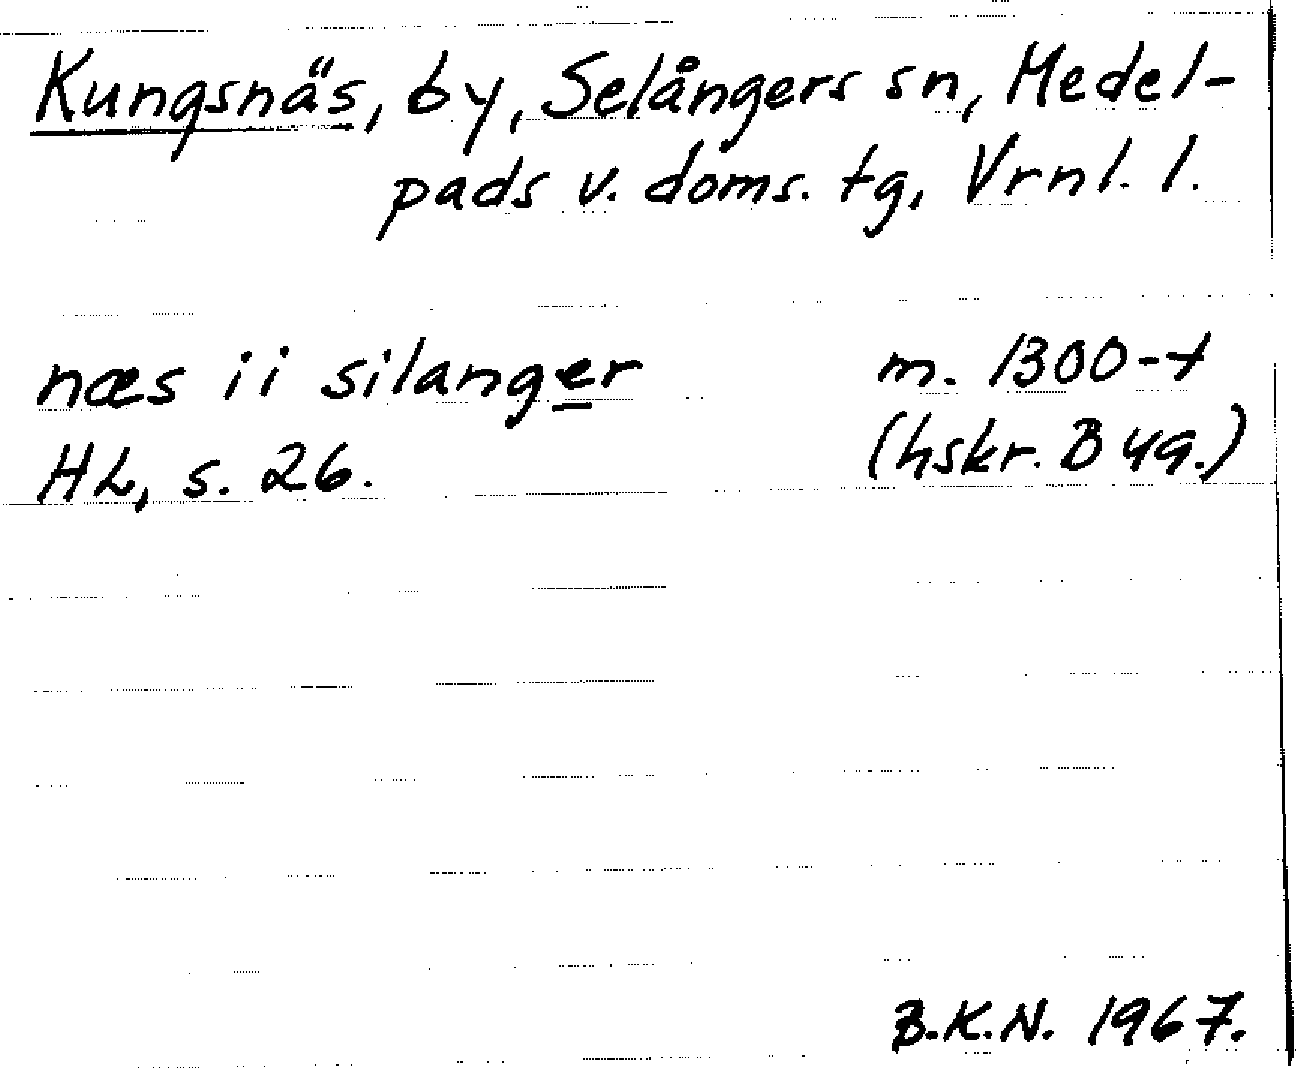 Kungsnäs, by, Selångers sn, Medel-
pads v. doms. tg, Vrnl. l.
næs ii silanger m. 1300-t
HL, s. 26. (hskr. B 49.)
B.K.N. 1967.